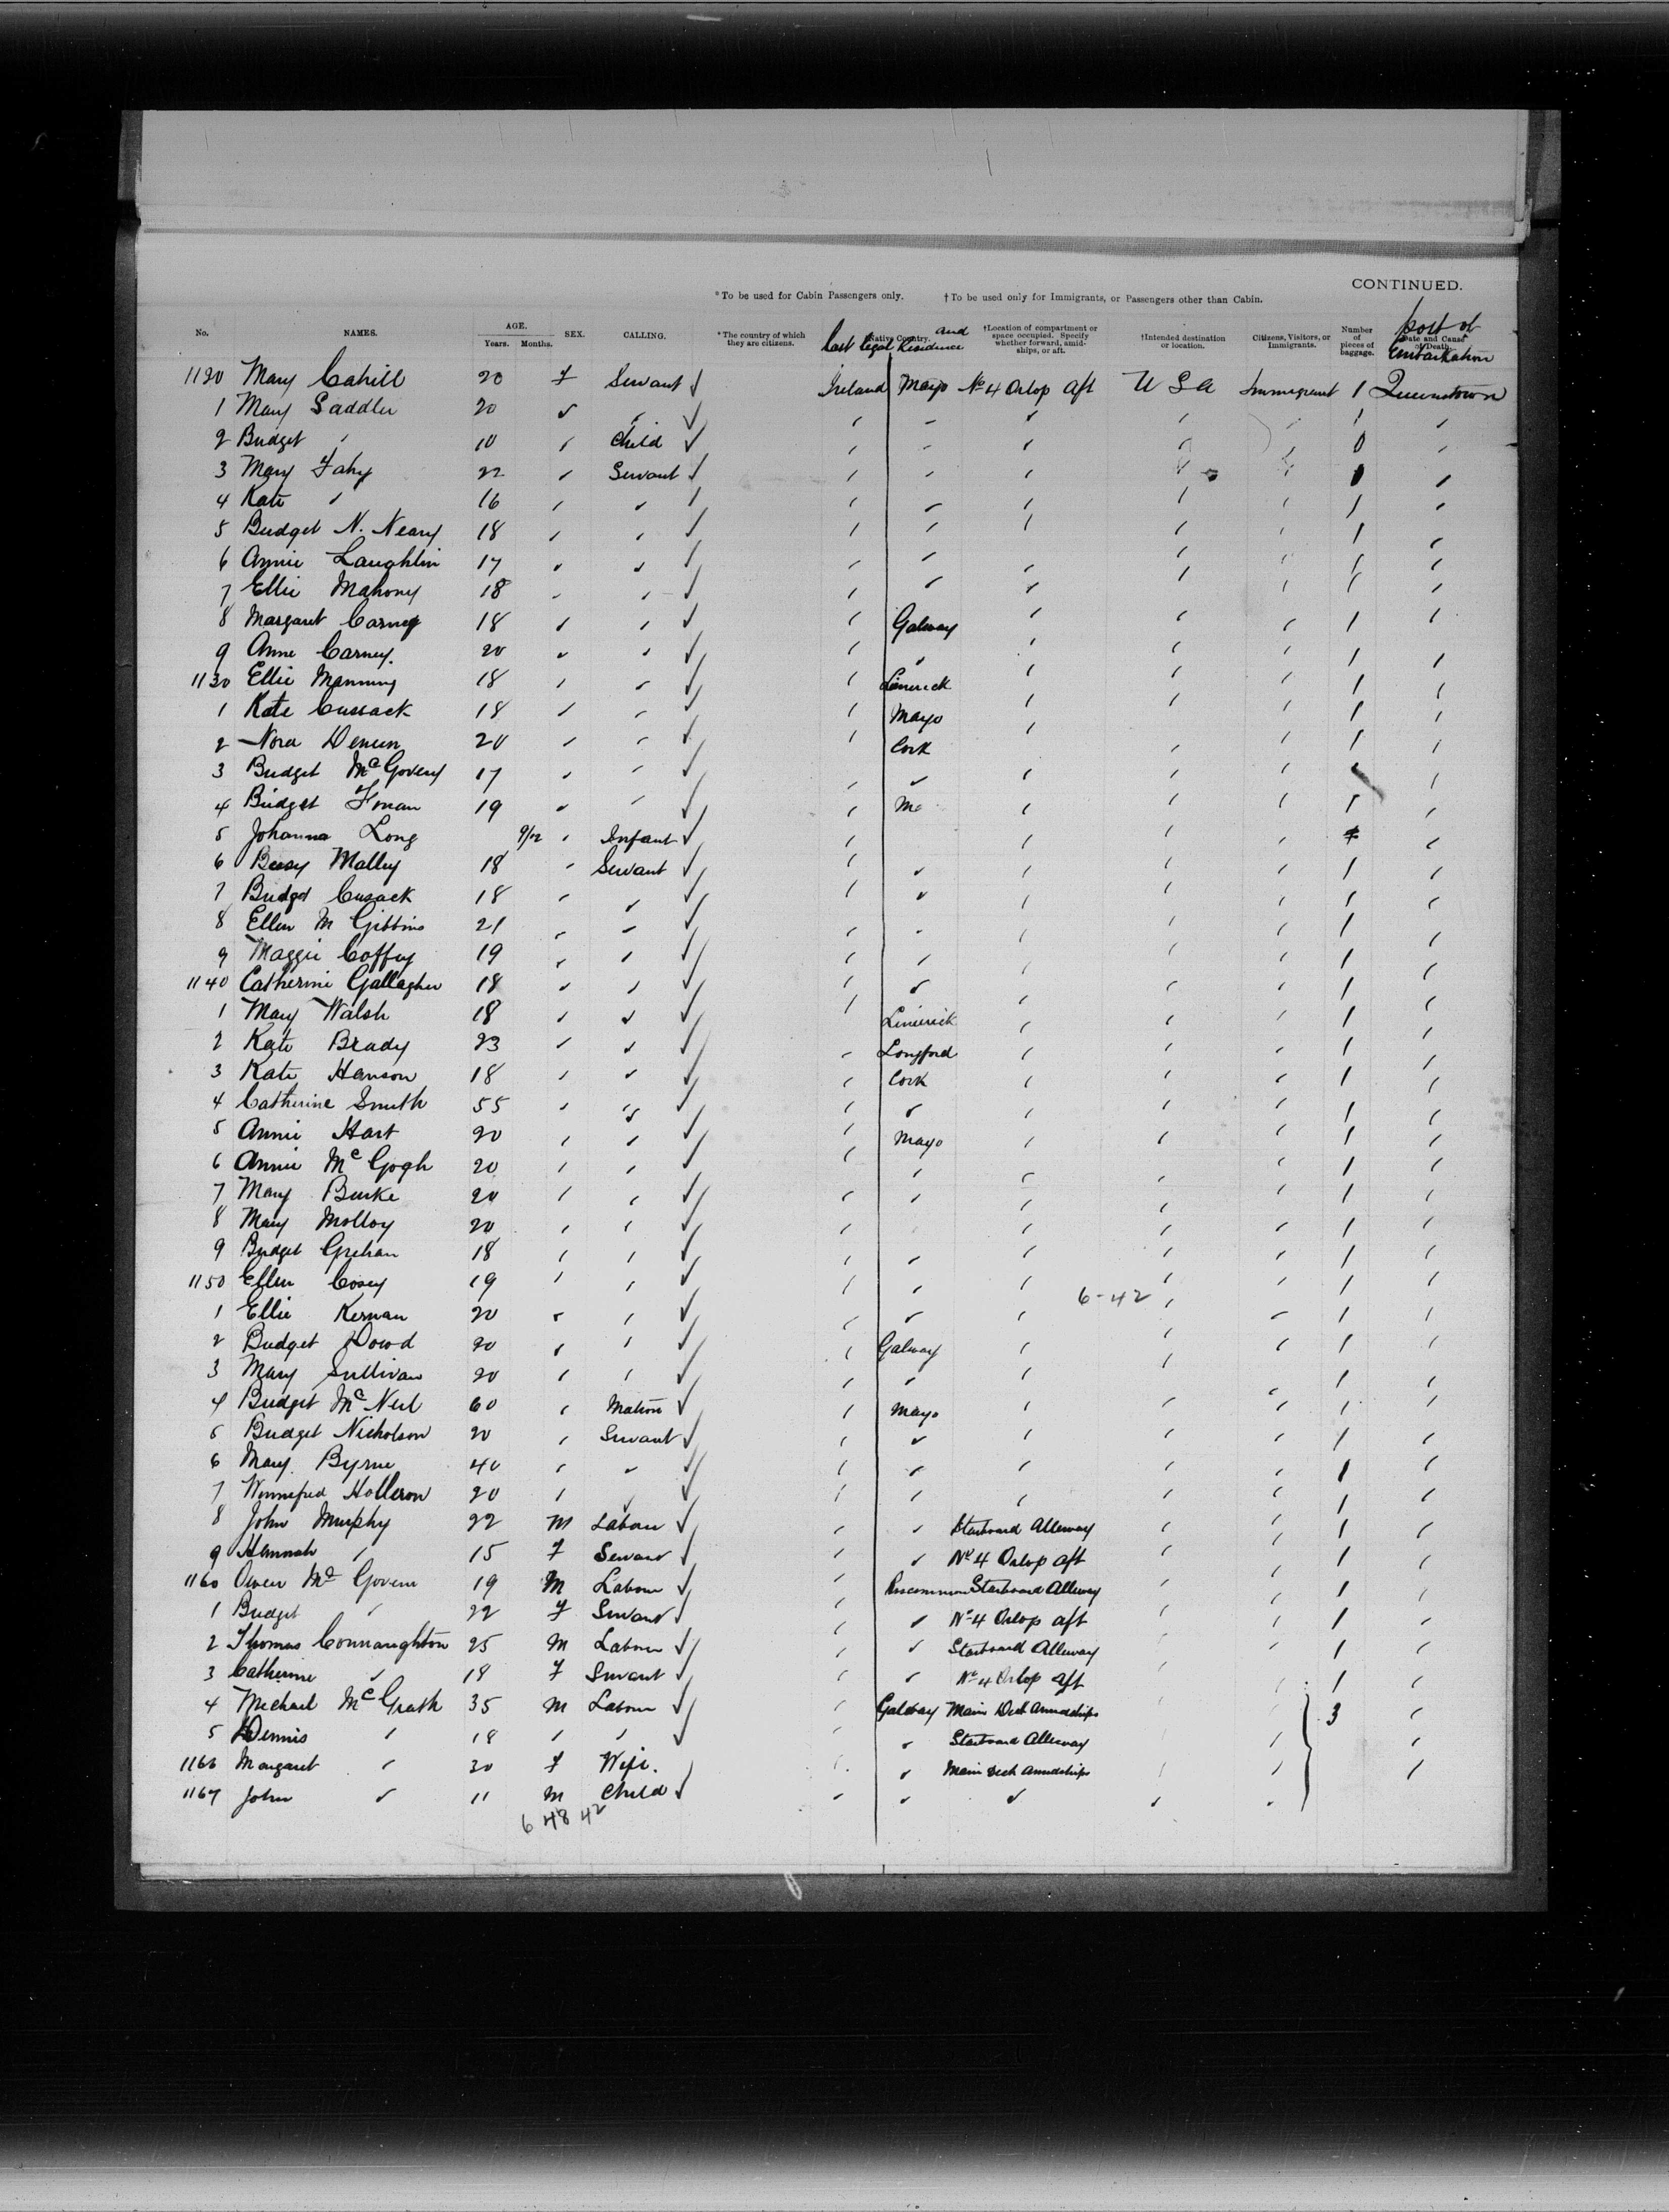 CONTINUED.
*To be used for Cabin Passengers only. †To be used only for Immigrants, or Passengers other than Cabin.
No. NAMES. AGE. Years. Months. SEX. CALLING. *The country of which they are citizens. Native Country. Last legal Residence and †Location of compartment or space occupied. Specify whether forward, amidships, or aft. †Intended destination or location. Citizens, Visitors, or Immigrants. Number of pieces of baggage. Date and Cause of Death. port of Embarkation
1120 Mary Cahill 20 F Servant Ireland Mayo No 4 Orlop aft U S A Immigrant 1 Queenstown
1 Mary Saddler 20 1
2 Bridget " 10 Child 0
3 Mary Fahy 22 Servant
4 Kate " 16 1
5 Bridget N. Neary 18 1
6 Annie Laughlin 17 1
7 Ellie Mahony 18 1
8 Margaret Carney 18 Galway 1
9 Anne Carney. 20 1
1130 Ellie Manning 18 Limerick 1
1 Kate Cussack 18 Mayo 1
2 Nora 20 Cork 1
3 Bridget McGovern 17
4 Bridget 19 1
5 Johanna Long 9/12 Infant
6 Bessy Malley 18 Servant 1
7 Bridget Cusack 18 1
8 Ellen M Gibbins 21 1
9 Maggie Coffey 19 1
1140 Catherine Gallagher 18 1
1 Mary Walsh 18 Limerick 1
2 Kate Brady 23 Longford 1
3 Kate Hanson 18 Cork 1
4 Catherine Smith 55 1
5 Annie Hart 20 Mayo 1
6 Annie McGogh 20 1
7 Mary Burke 20 1
8 Mary Molloy 20 1
9 Bridget Grehan 18 1
1150 Ellen Cosey 19 1
6-42
1 Ellie Kernan 20 1
2 Bridget Dowd 20 Galway 1
3 Mary Sullivan 20 1
4 Bridget McNeil 60 Matron Mayo 1
5 Bridget Nicholson 20 Servant 1
6 Mary Byrne 40 1
7 Winnefred Holleron 20 1
8 John Murphy 22 M Labour Starboard Alleway 1
9 Hannah " 15 F Servant No 4 Orlop aft 1
1160 Owen McGovern 19 M Labour Roscommon Starboard Alleway 1
1 Bridget " 22 F Servant No 4 Orlop aft 1
2 Thomas Connaughton 25 M Labour Starboard Alleway 1
3 Catherine " 18 F Servant No 4 Orlop aft 1
4 Michael McGrath 35 M Labour Galway Main Deck Amidships 3
5 Dennis " 18 Starboard Alleway
1166 Margaret " 30 F Wife. Main Deck Amidships
1167 John " 11 M Child
6 48 42